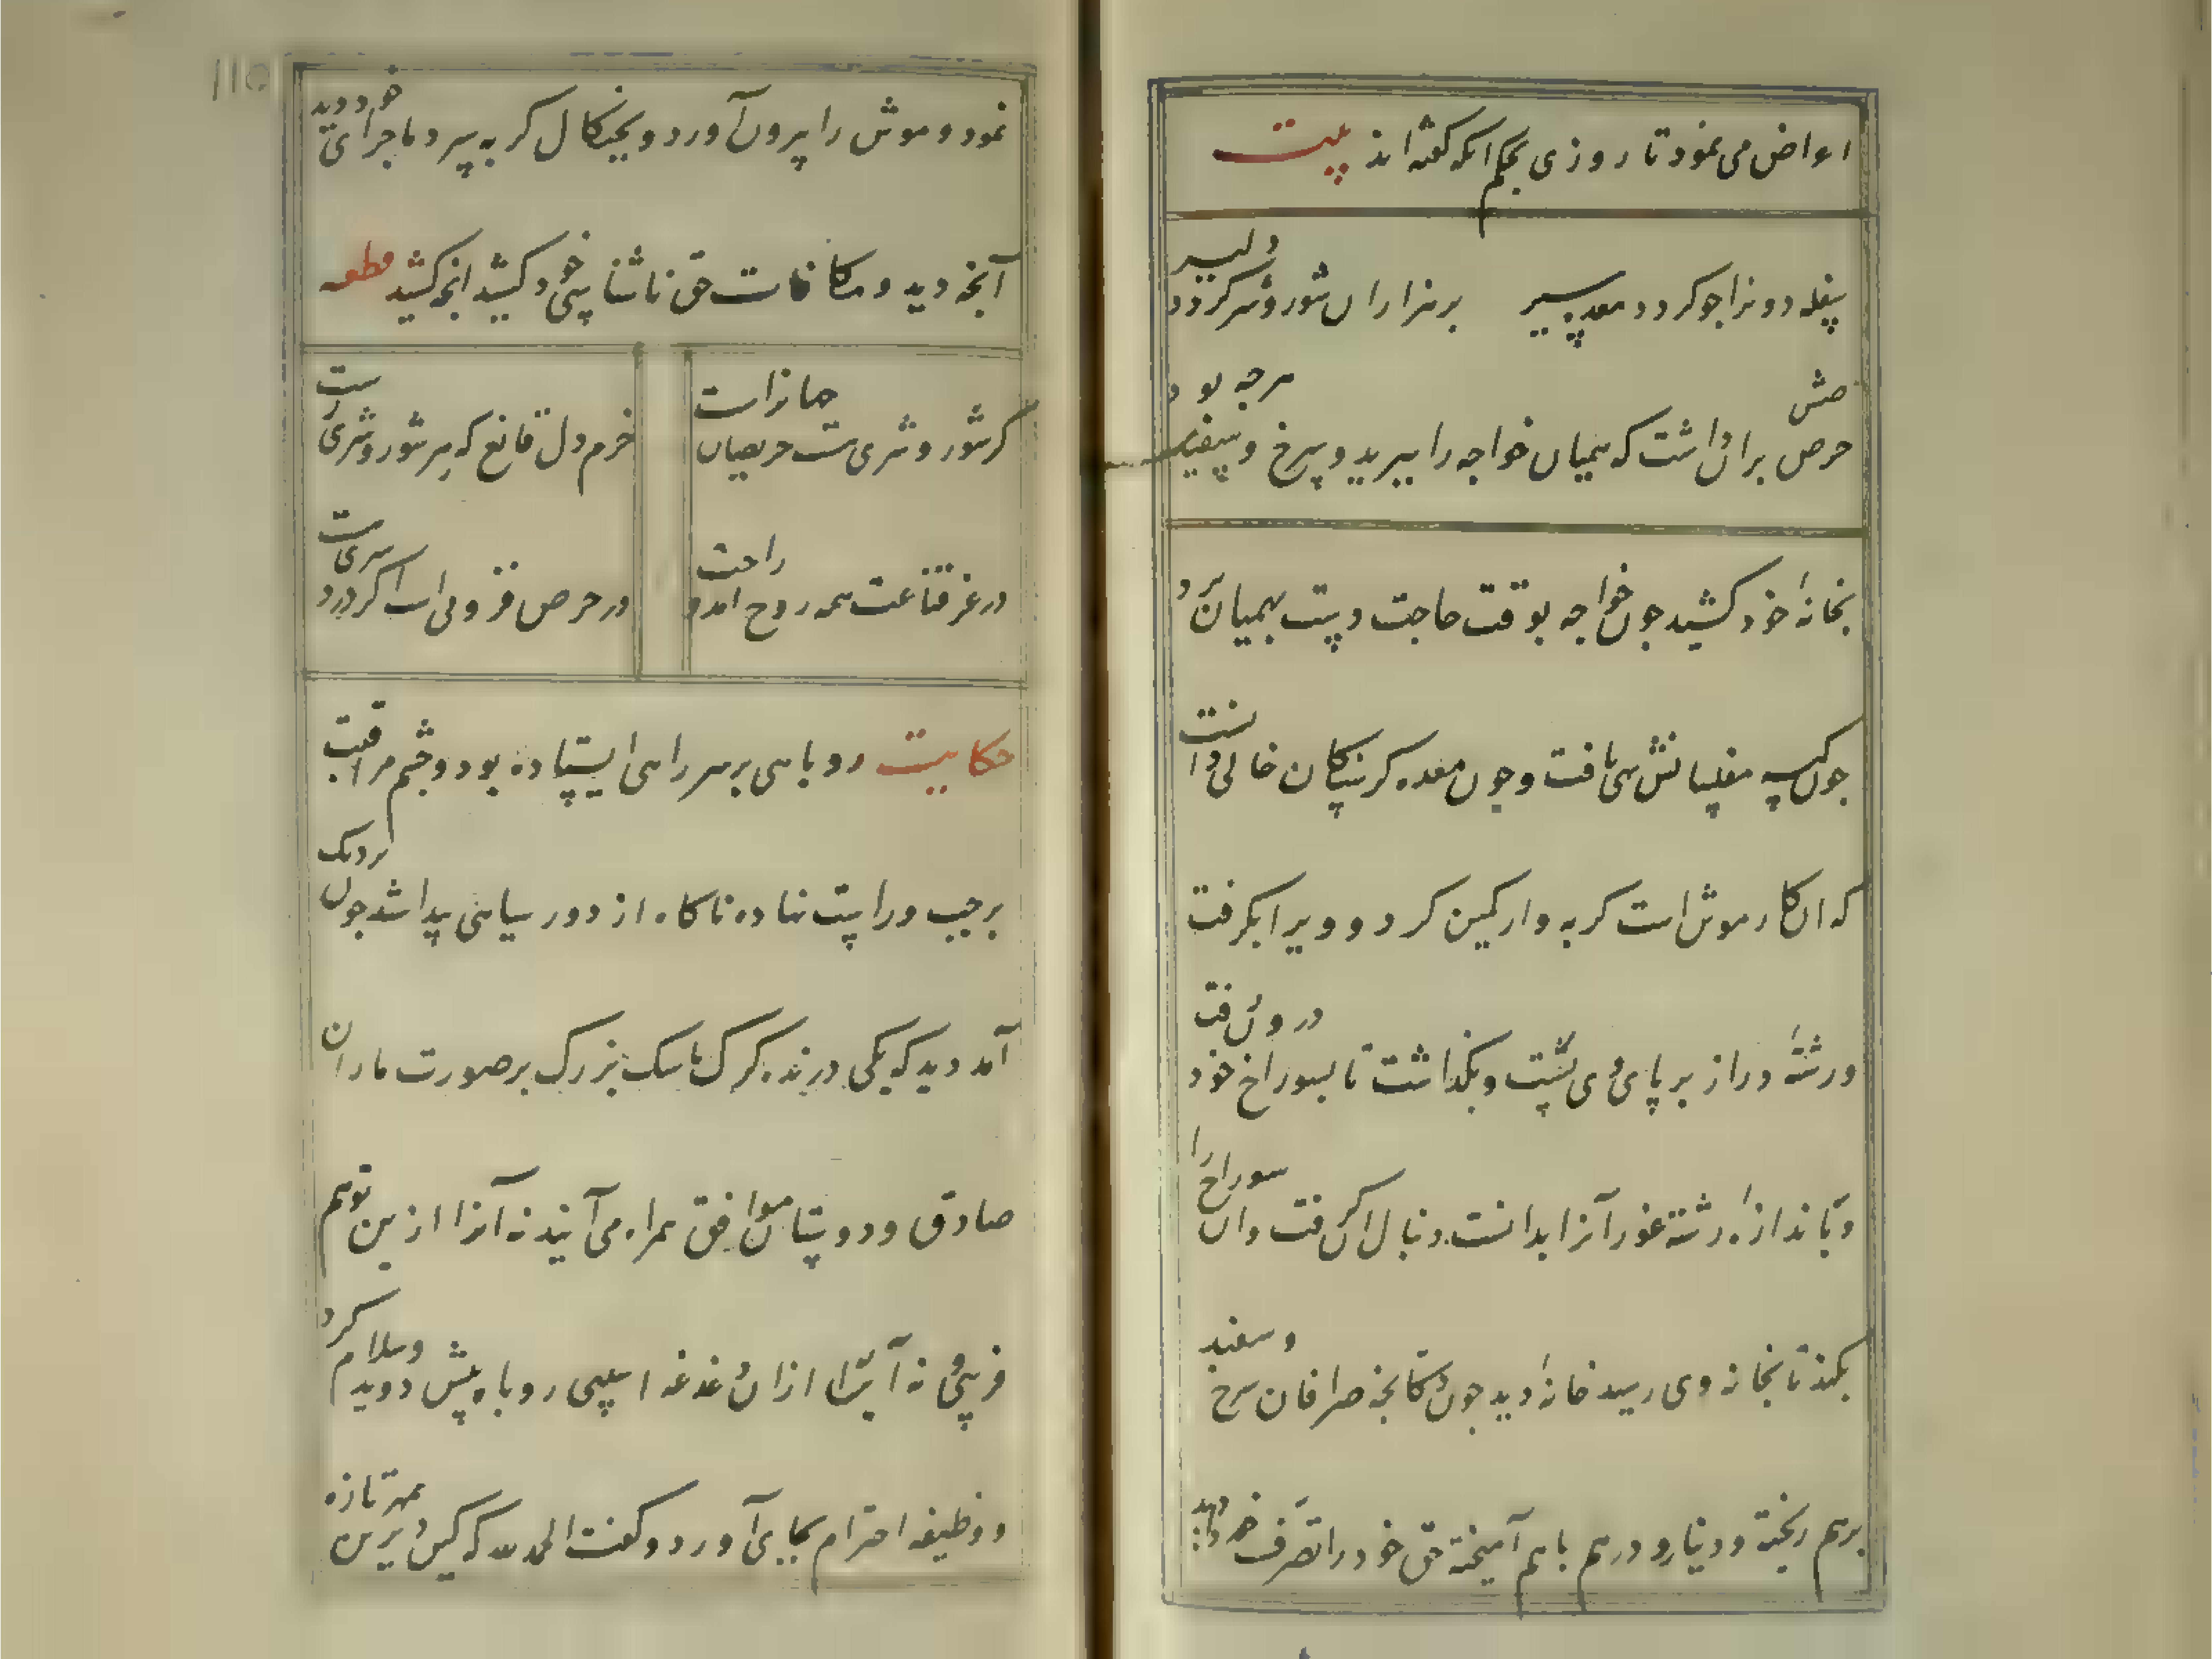 اعراض می نمود تا روزی بحکم انکه کفته اند بیت
سفله دونرا جو کردد معده سیر بر هزاران شور و شر کردد دلیر
حرصش بران داشت که همیان خواجه را ببرید و سرخ و سفید هر جه بود
بخانهٔ خود کشید جون خواجه بوقت حاجت دست بهمیان برد
جون کیسه مفلسانش تهی یافت و جون معده کرسنکان خالی دانست
که ان کار موش است کربه وار کمین کرد و ویرا بکرفت
و رشتهٔ دراز بر پای وی بست و بکذاشت تا بسوراخ خود درون رفت
و باندازهٔ رشته غور آنرا بدانست دنبال ان کرفت و ان سوراخ را
بکند تا بخانه وی رسید خانهٔ دید جون دکانچه صرافان سرخ و سفید
برهم ریخته و دینار و درهم باهم آمیخته حق خود را تصرف
۱۱۵
نمود و موش را بیرون آورد و بچنکال کربه سپرد تا جزای خود دید
آنجه دید و مکافات حق ناشناسی خود کشید انجه کشید قطعه
کر شور و شری هست حریصان جهانراست خرم دل قانع که ز هر شور و شری رست
در عز قناعت همه روح امد و راحت در حرص فزونی است اکر درد سری هست
حکایت روباهی بر سر راهی ایستاده بود و چشم مراقبت
بر جپ و راست نهاده ناکاه از دور سیاهی پیدا شد جون نزدیک
آمد دید که یکی درنده کرک با سک بزرک بر صورت یاران
صادق و دوستان موافق همراه می آیند نه آنرا از این توهم
فریبی نه این را از ان دغدغه اسیبی روباه پیش دوید و سلام کرد
و وظیفه احترام بجای آورد و کفت الحمد لله که کین دیرین بمهر تازه